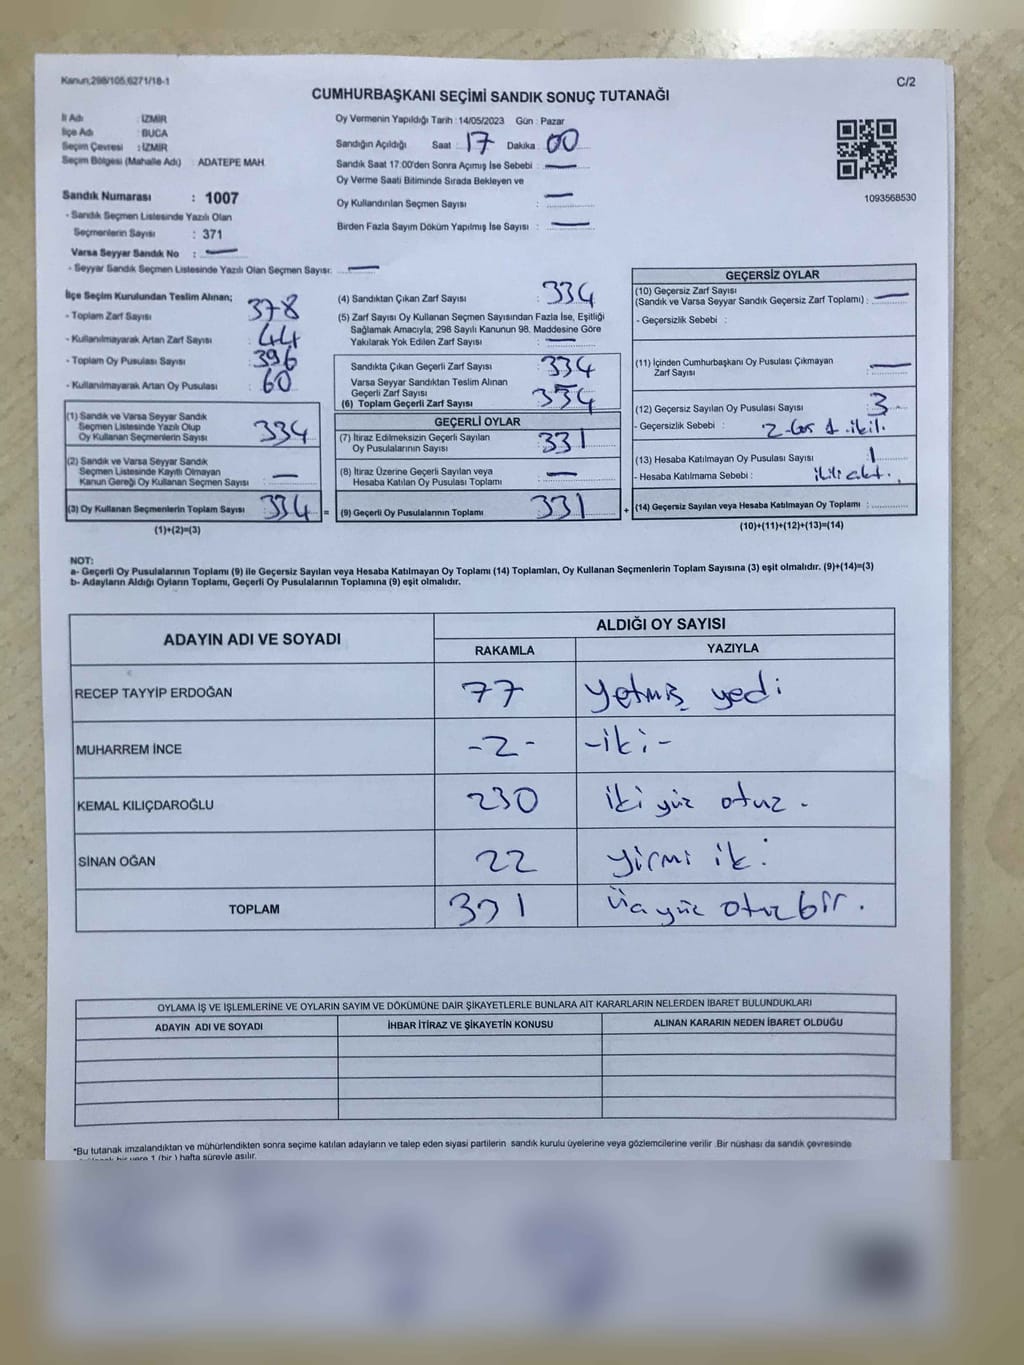 Kanun,298/105,6271/18-1
C/2
CUMHURBAŞKANI SEÇİMİ SANDIK SONUÇ TUTANAĞI
İl Adı : İZMİR
İlçe Adı : BUCA
Seçim Çevresi : İZMİR
Seçim Bölgesi (Mahalle Adı) : ADATEPE MAH.
Sandık Numarası : 1007
- Sandık Seçmen Listesinde Yazılı Olan
Seçmenlerin Sayısı : 371
Varsa Seyyar Sandık No :
- Seyyar Sandık Seçmen Listesinde Yazılı Olan Seçmen Sayısı:
Oy Vermenin Yapıldığı Tarih : 14/05/2023 Gün : Pazar
Sandığın Açıldığı Saat 17 Dakika 00
Sandık Saat 17:00'den Sonra Açımış İse Sebebi :
Oy Verme Saati Bitiminde Sırada Bekleyen ve
Oy Kullandırılan Seçmen Sayısı :
Birden Fazla Sayım Döküm Yapılmış İse Sayısı :
1093568530
İlçe Seçim Kurulundan Teslim Alınan;
- Toplam Zarf Sayısı : 378
- Kullanılmayarak Artan Zarf Sayısı : 44
- Toplam Oy Pusulası Sayısı : 396
- Kullanılmayarak Artan Oy Pusulası : 60
(1) Sandık ve Varsa Seyyar Sandık
Seçmen Listesinde Yazılı Olup
Oy Kullanan Seçmenlerin Sayısı : 334
(2) Sandık ve Varsa Seyyar Sandık
Seçmen Listesinde Kayıtlı Olmayan
Kanun Gereği Oy Kullanan Seçmen Sayısı :
(3) Oy Kullanan Seçmenlerin Toplam Sayısı : 334 =
(1)+(2)=(3)
(4) Sandıktan Çıkan Zarf Sayısı : 334
(5) Zarf Sayısı Oy Kullanan Seçmen Sayısından Fazla İse, Eşitliği
Sağlamak Amacıyla, 298 Sayılı Kanunun 98. Maddesine Göre
Yakılarak Yok Edilen Zarf Sayısı :
Sandıkta Çıkan Geçerli Zarf Sayısı : 334
Varsa Seyyar Sandıktan Teslim Alınan
Geçerli Zarf Sayısı :
(6) Toplam Geçerli Zarf Sayısı : 334
GEÇERLİ OYLAR
(7) İtiraz Edilmeksizin Geçerli Sayılan
Oy Pusulasının Sayısı : 331
(8) İtiraz Üzerine Geçerli Sayılan veya
Hesaba Katılan Oy Pusulası Toplamı :
(9) Geçerli Oy Pusulalarının Toplamı : 331 +
GEÇERSİZ OYLAR
(10) Geçersiz Zarf Sayısı
(Sandık ve Varsa Seyyar Sandık Geçersiz Zarf Toplamı) :
- Geçersizlik Sebebi :
(11) İçinden Cumhurbaşkanı Oy Pusulası Çıkmayan
Zarf Sayısı :
(12) Geçersiz Sayılan Oy Pusulası Sayısı : 3
- Geçersizlik Sebebi :
(13) Hesaba Katılmayan Oy Pusulası Sayısı : 1
- Hesaba Katılmama Sebebi :
(14) Geçersiz Sayılan veya Hesaba Katılmayan Oy Toplamı :
(10)+(11)+(12)+(13)=(14)
NOT:
a- Geçerli Oy Pusulalarının Toplamı (9) ile Geçersiz Sayılan veya Hesaba Katılmayan Oy Toplamı (14) Toplamları, Oy Kullanan Seçmenlerin Toplam Sayısına (3) eşit olmalıdır. (9)+(14)=(3)
b- Adayların Aldığı Oyların Toplamı, Geçerli Oy Pusulalarının Toplamına (9) eşit olmalıdır.
ADAYIN ADI VE SOYADI ALDIĞI OY SAYISI
RAKAMLA YAZIYLA
RECEP TAYYİP ERDOĞAN 77 yetmiş yedi
MUHARREM İNCE -2- -iki-
KEMAL KILIÇDAROĞLU 230 iki yüz otuz.
SİNAN OĞAN 22 yirmi iki
TOPLAM 331 üç yüz otuz bir.
OYLAMA İŞ VE İŞLEMLERİNE VE OYLARIN SAYIM VE DÖKÜMÜNE DAİR ŞİKAYETLERLE BUNLARA AİT KARARLARIN NELERDEN İBARET BULUNDUKLARI
ADAYIN ADI VE SOYADI İHBAR İTİRAZ VE ŞİKAYETİN KONUSU ALINAN KARARIN NEDEN İBARET OLDUĞU
*Bu tutanak imzalandıktan ve mühürlendikten sonra seçime katılan adayların ve talep eden siyasi partilerin sandık kurulu üyelerine veya gözlemcilerine verilir .Bir nüshası da sandık çevresinde
bir yere 1 (bir ) hafta süreyle asılır.